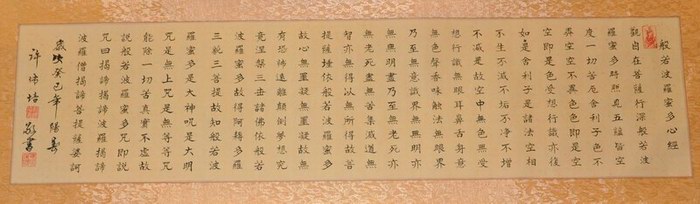 般若波羅蜜多心經
觀自在菩薩行深般若波
羅蜜多時照見五蘊皆空
度一切苦厄舍利子色不
異空空不異色色即是空
空即是色受想行識亦復
如是舍利子是諸法空相
不生不滅不垢不淨不增
不減是故空中無色無受
想行識無眼耳鼻舌身意
無色聲香味觸法無眼界
乃至無意識界無無明亦
無無明盡乃至無老死亦
無老死盡無苦集滅道無
智亦無得以無所得故菩
提薩埵依般若波羅蜜多
故心無罣礙無罣礙故無
有恐怖遠離顛倒夢想究
竟涅槃三世諸佛依般若
波羅蜜多故得阿耨多羅
三藐三菩提故知般若波
羅蜜多是大神咒是大明
咒是無上咒是無等等咒
能除一切苦真實不虛故
說般若波羅蜜多咒即說
咒曰揭諦揭諦波羅揭諦
波羅僧揭諦菩提薩婆訶
歲次癸巳年
許 敬書